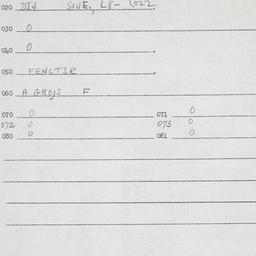 020 DI4 SIVE, L8- 1022
030 0
040 0
050 FENCT3R
060 A GROJS F
070 0 071 0
072 0 073 0
080 0 081 0